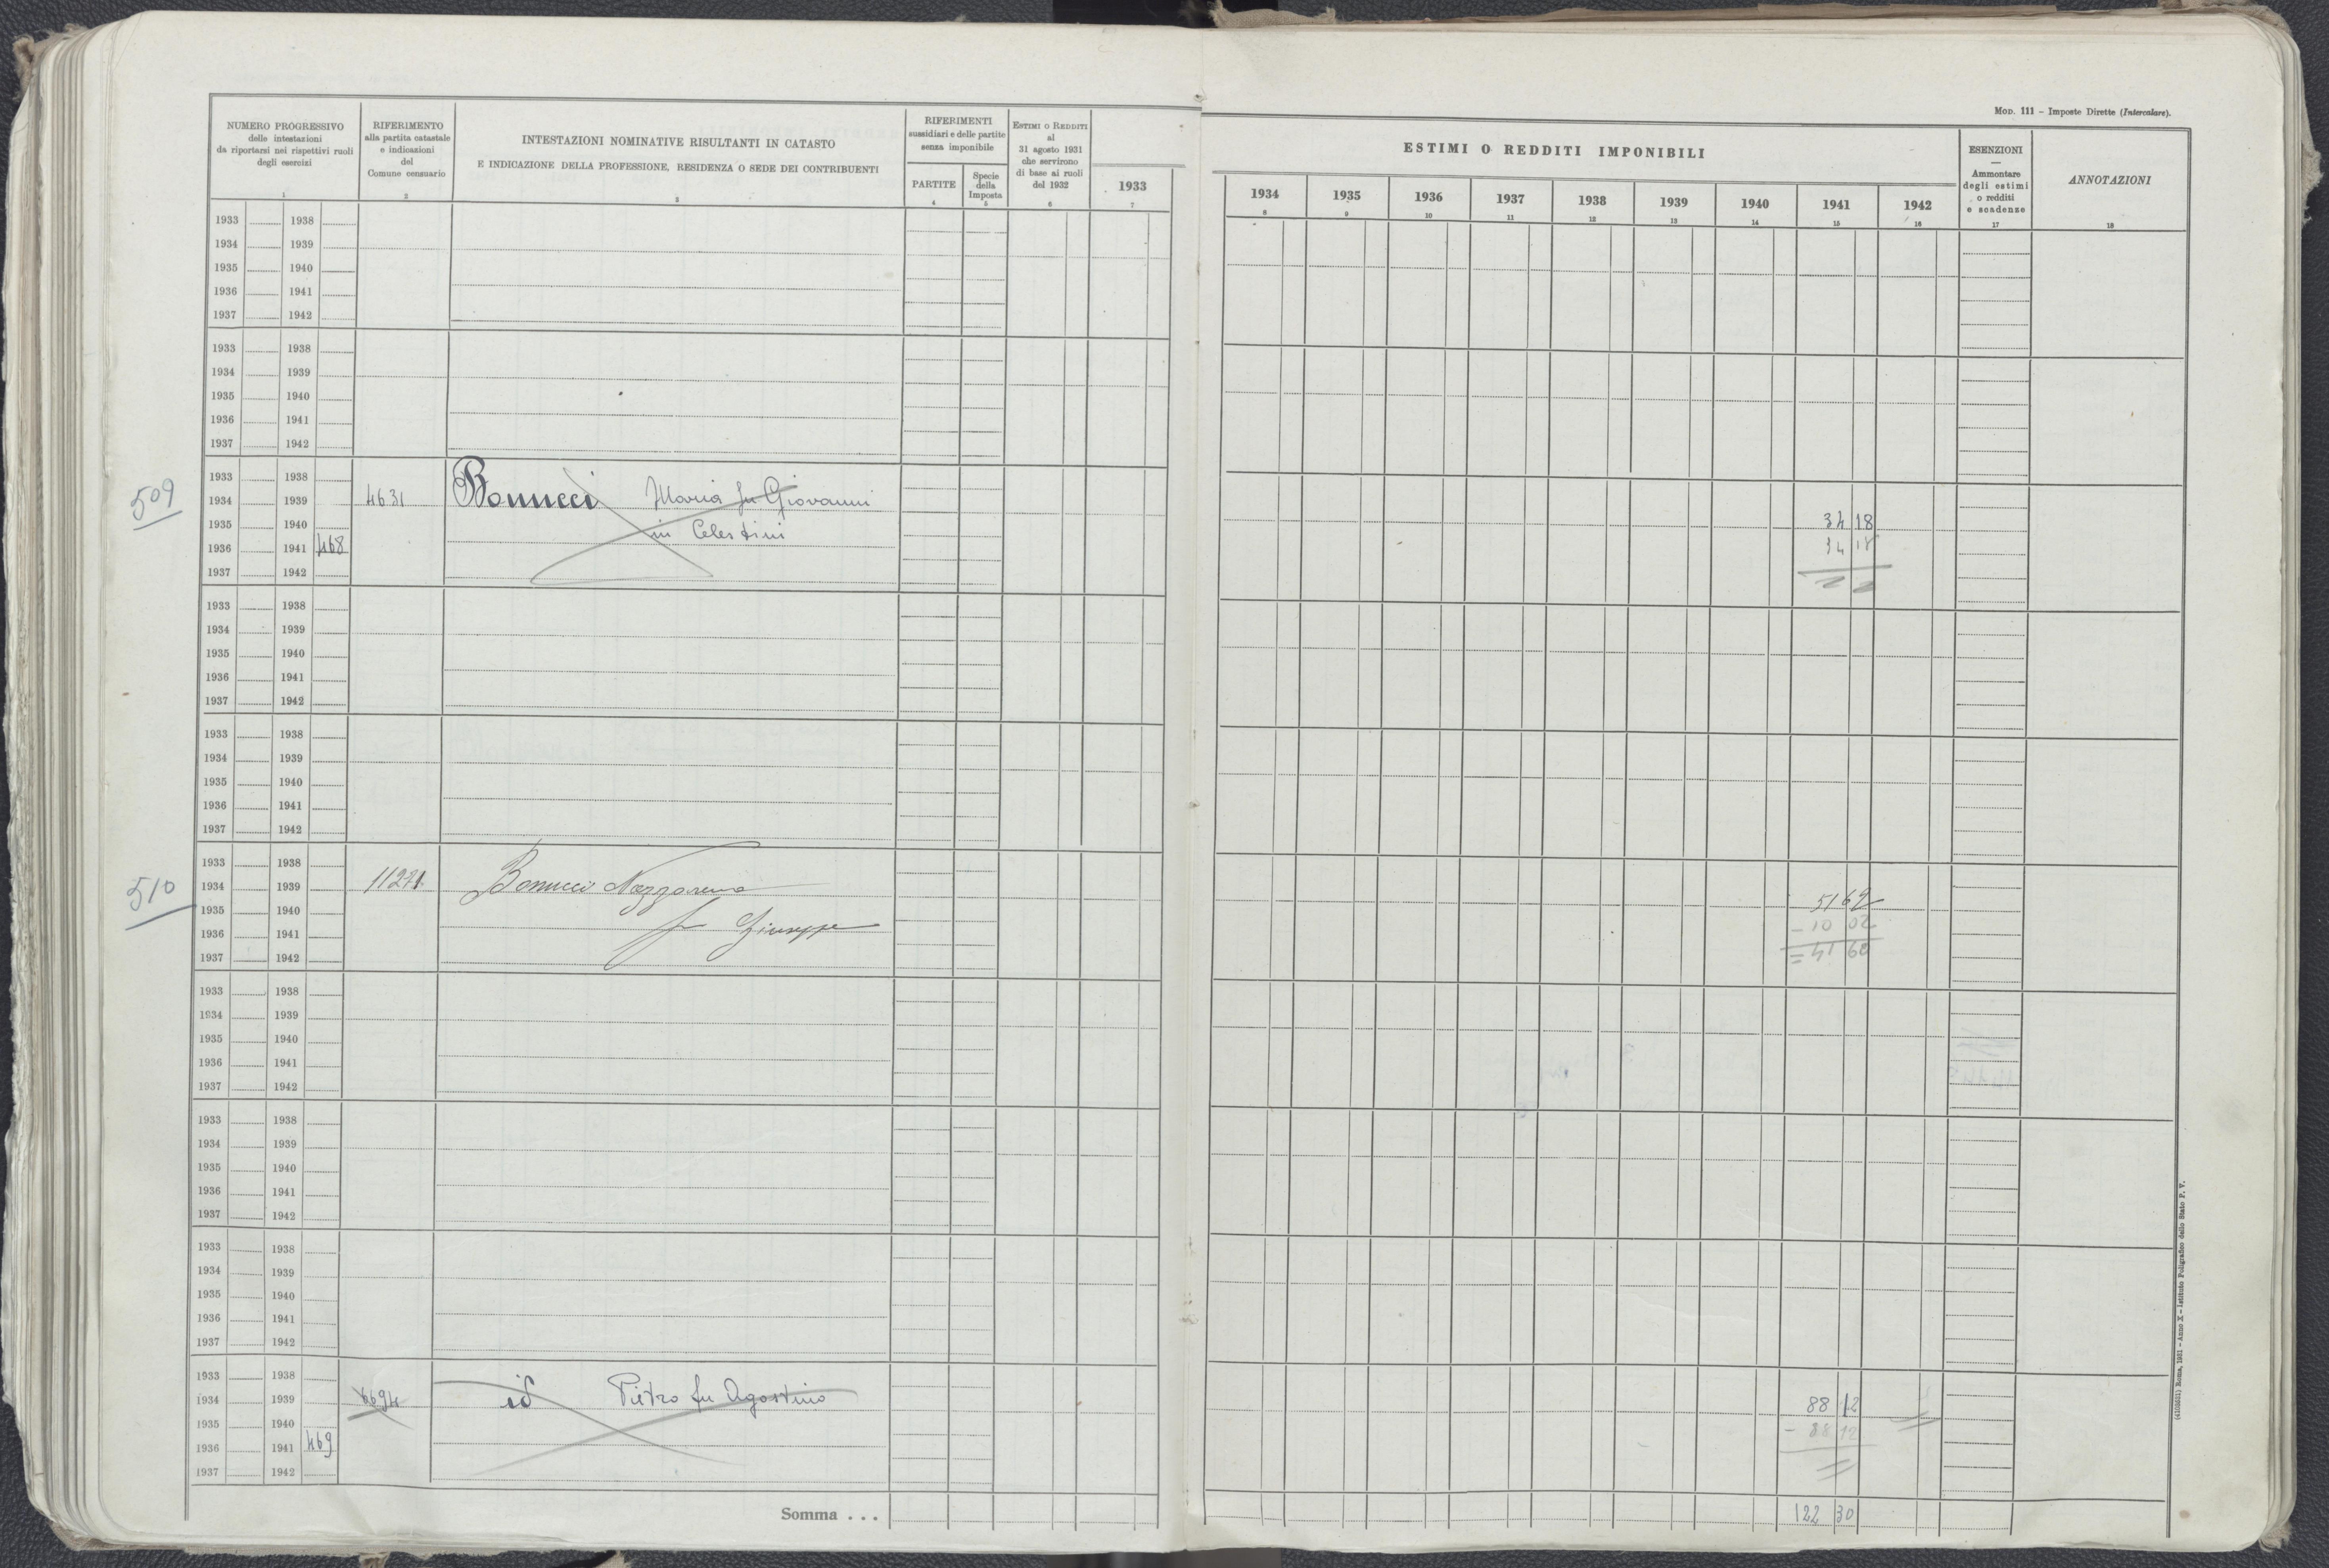 MOD. 111 – Imposte Dirette (Intercalare).
NUMERO PROGRESSIVO
delle intestazioni
da riportarsi nei rispettivi ruoli
degli esercizi
1
RIFERIMENTO
alla partita catastale
e indicazioni
del
Comune censuario
2
INTESTAZIONI NOMINATIVE RISULTANTI IN CATASTO
E INDICAZIONE DELLA PROFESSIONE, RESIDENZA O SEDE DEI CONTRIBUENTI
3
RIFERIMENTI
sussidiari e delle partite
senza imponibile
PARTITE
4
Specie
della
Imposta
5
ESTIMI O REDDITI
al
31 agosto 1931
che servirono
di base ai ruoli
del 1932
6
ESTIMI O REDDITI IMPONIBILI
1933 1934 1935 1936 1937 1938 1939 1940 1941 1942
7 8 9 10 11 12 13 14 15 16
ESENZIONI
—
Ammontare
degli estimi
o redditi
e scadenze
17
ANNOTAZIONI
18
1933 1938
1934 1939
1935 1940
1936 1941
1937 1942
1933 1938
1934 1939
1935 1940
1936 1941
1937 1942
1933 1938
509 1934 1939 4631 Bonucci Maria fu Giovanni
1935 1940 in Celestini 34 18
1936 1941 468 34 18
1937 1942
1933 1938
1934 1939
1935 1940
1936 1941
1937 1942
1933 1938
1934 1939
1935 1940
1936 1941
1937 1942
1933 1938
510 1934 1939 Bonucci Nazzareno 51 62
1935 1940 fu Giuseppe
1936 1941 – 10 02
1937 1942 = 41 60
1933 1938
1934 1939
1935 1940
1936 1941
1937 1942
1933 1938
1934 1939
1935 1940
1936 1941
1937 1942
1933 1938
1934 1939
1935 1940
1936 1941
1937 1942
1933 1938
1934 1939 6694 id Pietro fu Agostino 88 12
1935 1940 – 88 12
1936 1941 469
1937 1942
Somma . . . 122 30
(4103651) Roma, 1931 – Anno X – Istituto Poligrafico dello Stato P. V.